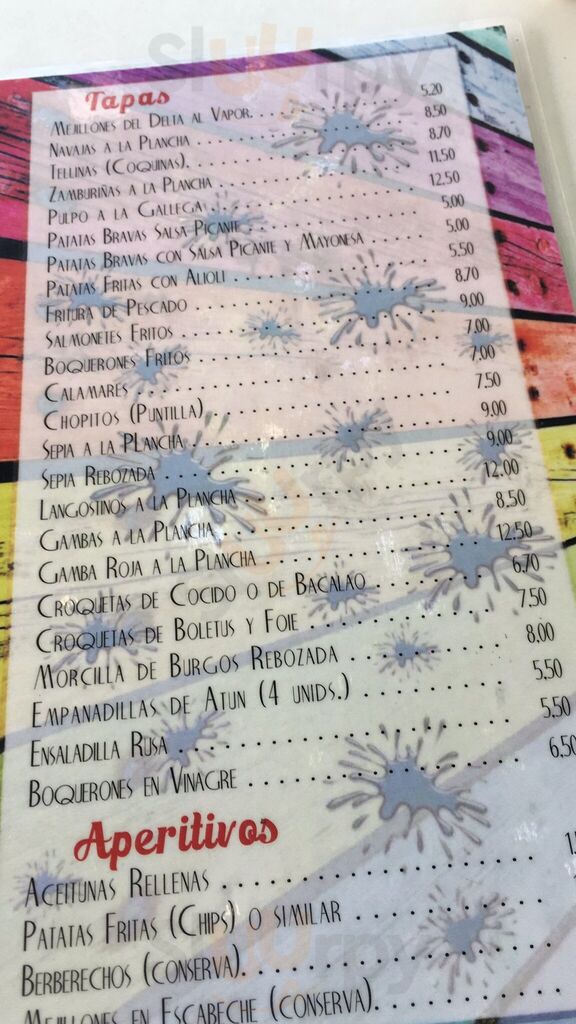 Tapas
Mejillones del Delta al Vapor. . . . . . . . . . . . . . 5.20
Navajas a la Plancha . . . . . . . . . . . . . . . . . . 8.50
Tellinas (Coquinas). . . . . . . . . . . . . . . . . . . 8.70
Zamburiñas a la Plancha . . . . . . . . . . . . . . . . 11.50
Pulpo a la Gallega . . . . . . . . . . . . . . . . . . . 12.50
Patatas Bravas Salsa Picante . . . . . . . . . . . . . . 5.00
Patatas Bravas con Salsa Picante y Mayonesa . . . . 5.00
Patatas Fritas con Alioli . . . . . . . . . . . . . . . . 5.50
Fritura de Pescado . . . . . . . . . . . . . . . . . . . 8.70
Salmonetes Fritos . . . . . . . . . . . . . . . . . . . 9.00
Boquerones Fritos . . . . . . . . . . . . . . . . . . . 7.00
Calamares . . . . . . . . . . . . . . . . . . . . . . . 7.00
Chopitos (Puntilla) . . . . . . . . . . . . . . . . . . . 7.50
Sepia a la Plancha . . . . . . . . . . . . . . . . . . . 9.00
Sepia Rebozada . . . . . . . . . . . . . . . . . . . . . 9.00
Langostinos a la Plancha . . . . . . . . . . . . . . . . 12.00
Gambas a la Plancha . . . . . . . . . . . . . . . . . . 8.50
Gamba Roja a la Plancha . . . . . . . . . . . . . . . . 12.50
Croquetas de Cocido o de Bacalao . . . . . . . . 6.70
Croquetas de Boletus y Foie . . . . . . . . . . . . 7.50
Morcilla de Burgos Rebozada . . . . . . . . . . . 8.00
Empanadillas de Atun (4 unids.) . . . . . . . . . . 5.50
Ensaladilla Rusa . . . . . . . . . . . . . . . . . . . . 5.50
Boquerones en Vinagre . . . . . . . . . . . . . . . . 6.50
Aperitivos
Aceitunas Rellenas . . . . . . . . . . . . . . . . . .
Patatas Fritas (Chips) o similar . . . . . . . . . .
Berberechos (conserva). . . . . . . . . . . . . . . .
Mejillones en Escabeche (conserva). . . . . . . .
Sluurpy
Sluurpy